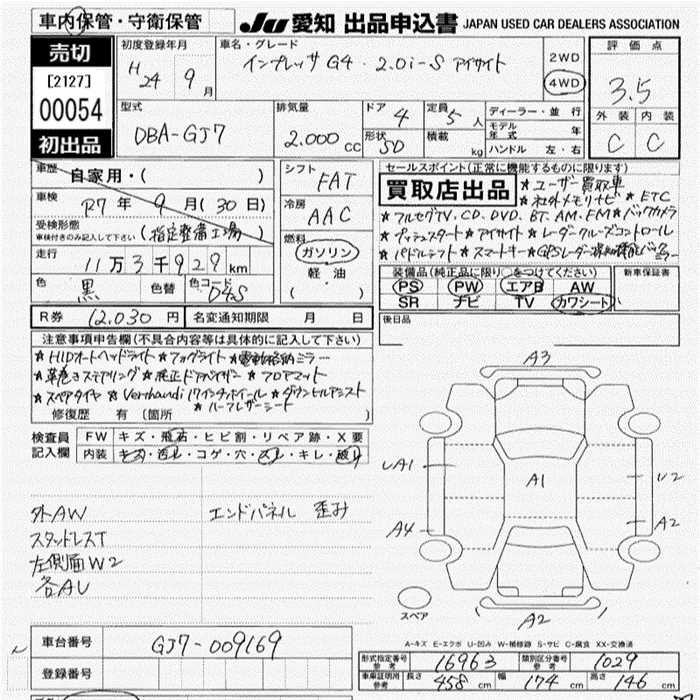 車内保管・守衛保管
JU 愛知 出品申込書 JAPAN USED CAR DEALERS ASSOCIATION
売切
[2127]
00054
初出品
初度登録年月
H24 9月
車名・グレード
インプレッサ G4・2.0i-S アイサイト
2WD
4WD
評価点
3.5
外装 内装
C C
型式
DBA-GJ7
排気量
2.000 cc
ドア 4
形状 5D
定員 5人
積載 kg
ディーラー・並行
モデル年式 年
ハンドル 左・右
車歴
自家用・( )
車検 R7年 9月(30日)
受検形態
車検付きのみ記入して下さい (指定整備工場)
走行 11万3千929km
色 黒 色替 色コード D4S
シフト FAT
冷房 AAC
燃料
ガソリン
軽油
( )
セールスポイント(正常に機能するものに限ります)
買取店出品
★ユーザー買取車
★社外メモリナビ ★ETC
★フルセグTV.CD.DVD.BT.AM.FM★バックカメラ
★プッシュスタート★アイサイト★レーダークルーズコントロール
★パドルシフト ★スマートキー★GPSレーダー
装備品(純正品に限り○をつけてください)
PS PW エアB AW
SR ナビ TV カワシート
新車保証書
後日品
R券 12.030円 名変通知期限 月 日
注意事項申告欄(不具合内容等は具体的に記入して下さい)
★HIDオートヘッドライト★フォグライト★電動格納ミラー
★革巻きステアリング★純正ドアバイザー★フロアマット
★スペアタイヤ★Verthandi 17インチホイール★ダウンヒルアシスト
★ハーフレザーシート
修復歴 有 [箇所
検査員記入欄
FW キズ・飛石・ヒビ割・リペア跡・X要
内装 キズ・汚れ・コゲ・穴・スレ・キレ・破れ
外AW エンドパネル 歪み
スタッドレスT
左側面W2
各AU
A3
UA1
A1
U2
A4
A2
スペア
A2
A-キズ E-エクボ U-凹み W-補修跡 S-サビ C-腐食 XX-交換済
車台番号 GJ7-009169
登録番号
形式指定番号 参考 16963 類別区分番号 参考 1029
車庫証明用 参考 長さ 458cm 幅 174cm 高さ 146cm